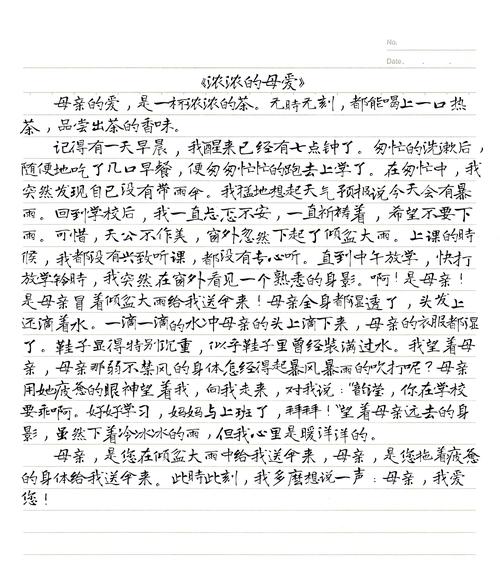 No.
Date.
《浓浓的母爱》
母亲的爱，是一杯浓浓的茶。无時无刻，都能喝上一口热
茶，品尝出茶的香味。
记得有一天早晨，我醒来已经有七点钟了。匆忙的洗漱后，
随便地吃了几口早餐，便匆匆忙忙的跑去上学了。在匆忙中，我
突然发现自己没有带雨伞。我猛地想起天气预报说今天会有暴
雨。回到学校后，我一直忐忑不安，一直祈祷着，希望不要下
雨。可惜，天公不作美，窗外忽然下起了倾盆大雨。上课的時
候，我都没有兴致听课，都没有专心听。直到中午放学，快打
放学铃時，我突然在窗外看见一个熟悉的身影。啊！是母亲！
是母亲冒着倾盆大雨给我送伞来！母亲全身都湿透了，头发上
还滴着水。一滴一滴的水冲母亲的头上滴下来，母亲的衣服都湿
了。鞋子显得特别沉重，似乎鞋子里曾经装满过水。我望着母
亲，母亲那弱不禁风的身体怎经得起暴风暴雨的吹打呢？母亲
用她疲惫的眼神望着我，向我走来，对我说：“韵莹，你在学校
要乖啊。好好学习，妈妈与上班了，拜拜！”望着母亲远去的身
影，虽然下着冷冰冰的雨，但我心里是暖洋洋的。
母亲，是您在倾盆大雨中给我送伞来。母亲，是您拖着疲惫
的身体给我送伞来。此時此刻，我多麼想说一声：母亲，我爱
您！